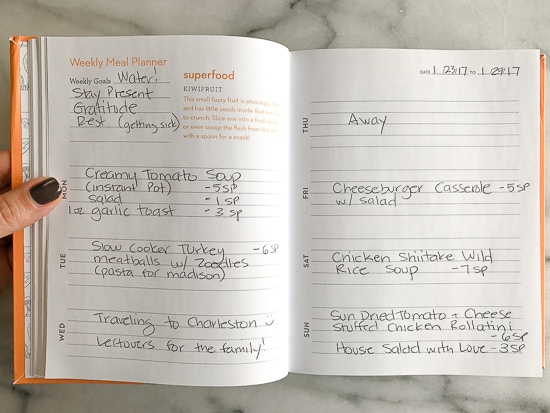 Weekly Meal Planner
Weekly Goals Water!
Stay Present
Gratitude
Rest (getting sick)
superfood
KIWIFRUIT
This small fuzzy fruit is pleasingly
and has little seeds inside that
to crunch. Slice one into a fruit
or even scoop the flesh from the
with a spoon for a snack!
MON
Creamy Tomato Soup
(instant Pot) - 5 SP
salad - 1 SP
1oz garlic toast - 3 SP
TUE
Slow Cooker Turkey - 6 SP
meatballs w/ Zoodles
(pasta for madison)
WED
Traveling to Charleston
Leftovers for the family!
DATE 1/23/17 TO 1/29/17
THU
Away
FRI
Cheeseburger Casserole - 5 SP
w/ salad
SAT
Chicken Shiitake Wild
Rice Soup - 7 SP
SUN
Sun Dried Tomato + Cheese
Stuffed Chicken Rollatini
- 6 SP
House Salad with Love - 3 SP